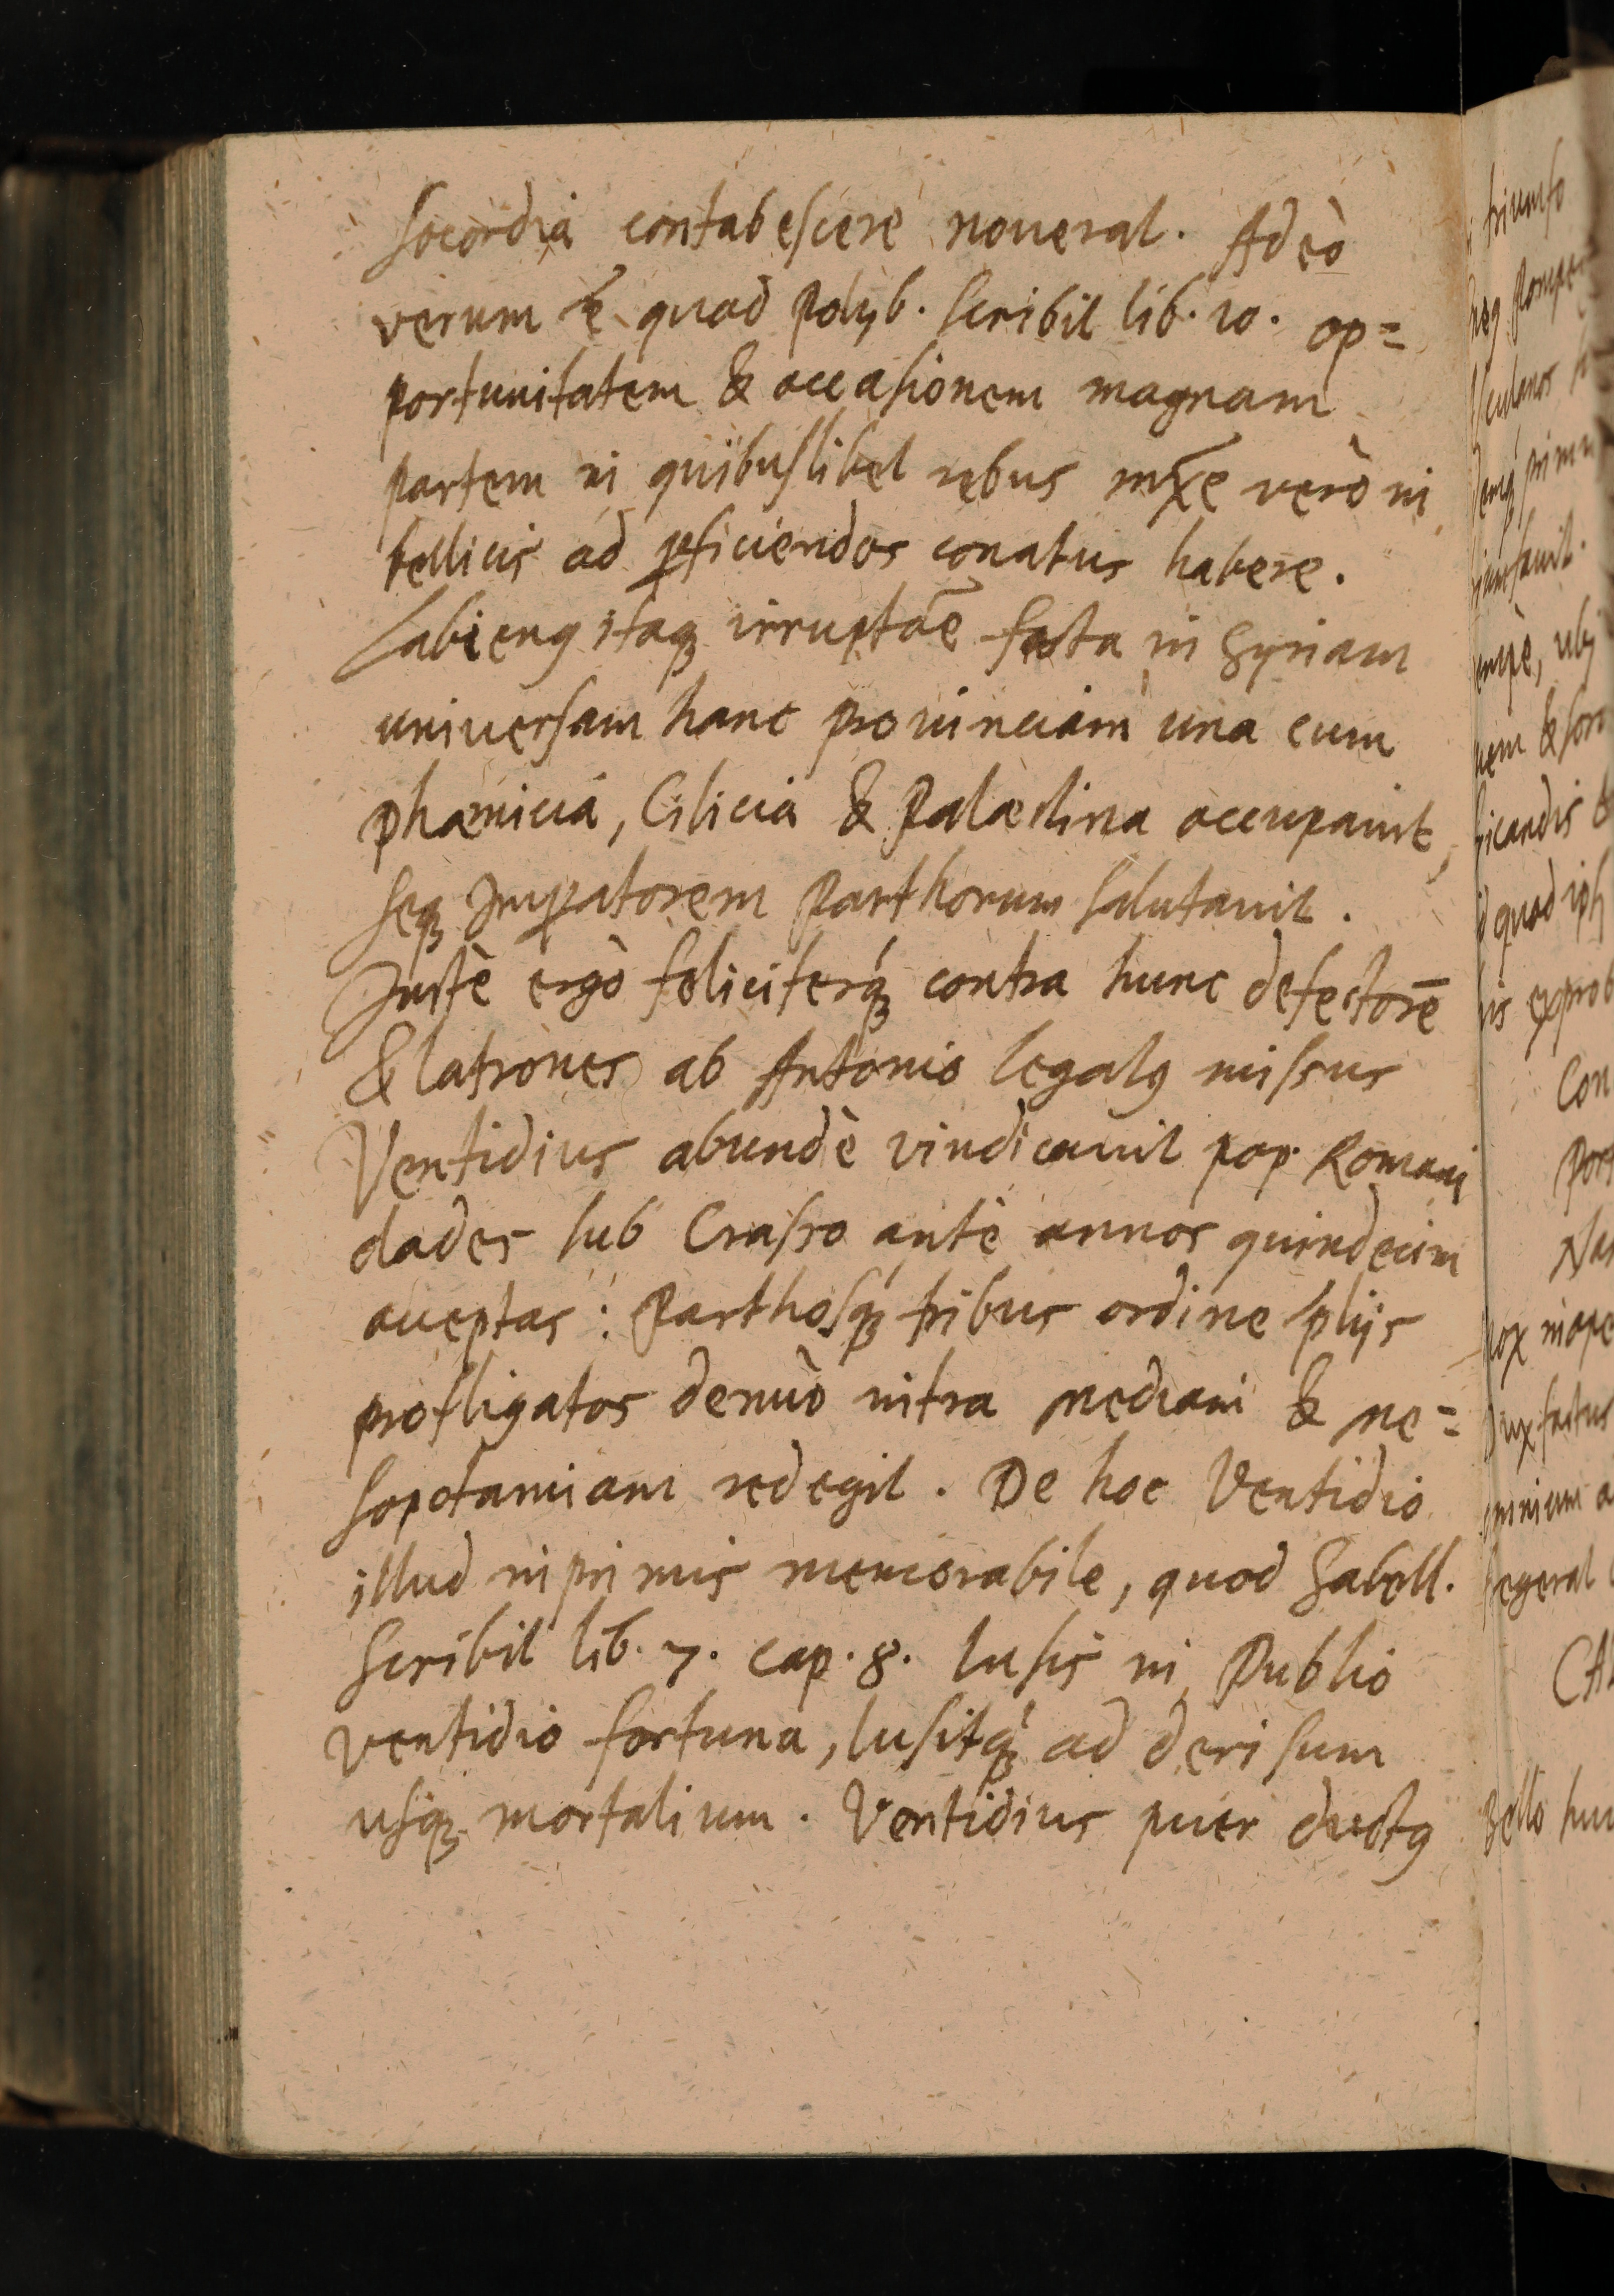 socordia contabescere noverat. Adeò
verum ē quod Polyb. scribit lib. 10. op=
portunitatem & occasionem magnam
partem in quibuslibet rebus mxē verò in
bellicis ad ꝑficiendos conatus habere.
Labienꝰ itaqꝫ irruptõe facta in Syriam
universam hanc provinciam una cum
Phœnicia, Cilicia & Palæstina occupavit,
seqꝫ Imꝑatorem Parthorum salutavit.
Justè ergò feliciterqꝫ́ contra hunc defectorē
& latrones ab Antonio legatꝰ missus
Ventidius abundè vindicavit pop. Romani
clades sub Crasso antè annos quindecim
acceptas: Parthosqꝫ́ tribus ordine pliis
profligatos denuò intra Mediam & Me=
sopotamiam redegit. De hoc Ventidio
illud inprimis memorabile, quod Sabell.
scribit lib. 7. cap. 8. lusis in Publio
Ventidio fortuna, lusitqꝫ́ ad derisum
usqꝫ mortalium. Ventidius puer ductꝰ
triumfo
quod
exprob
Con
factus
Bello